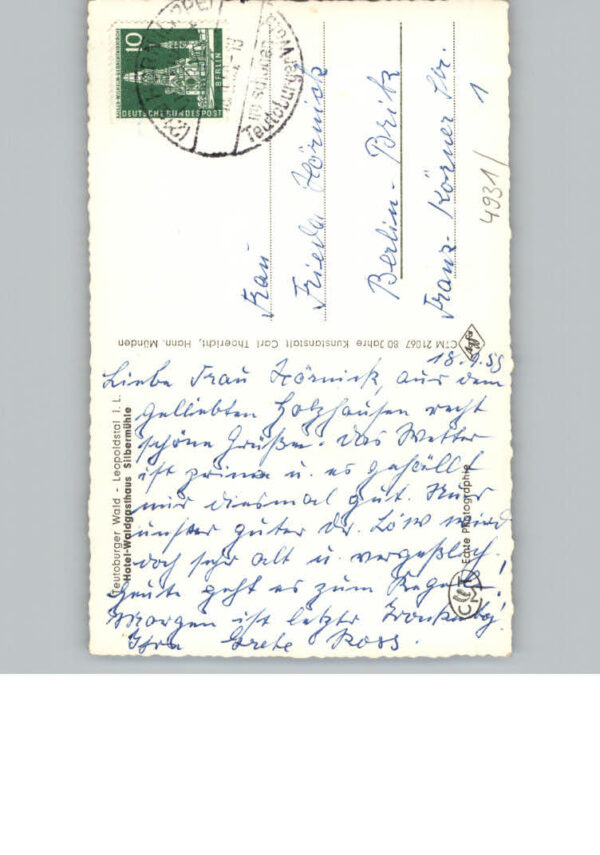 10
BERLIN
DEUTSCHE BUNDESPOST
Teutoburger Wald
Frau
Frieda Hörnick
Berlin-Britz
Franz-Körner Str. 1
4931/
CTM 21067 80 Jahre Kunstanstalt Carl Thoericht, Hann. Münden
Agfa
Teutoburger Wald - Leopoldstal i. L.
Hotel-Waldgasthaus Silbermühle
Echte Photographie
18.9.59
Liebe Frau Hörnick, aus dem
geliebten Holzhausen recht
schöne Grüße. Das Wetter
ist prima u. es gefällt
mir diesmal gut. Nur
unser guter Dr. Löw wird
doch sehr alt u. vergeßlich.
Heute geht es zum
Morgen ist letzter
Ihre Grete Koss.